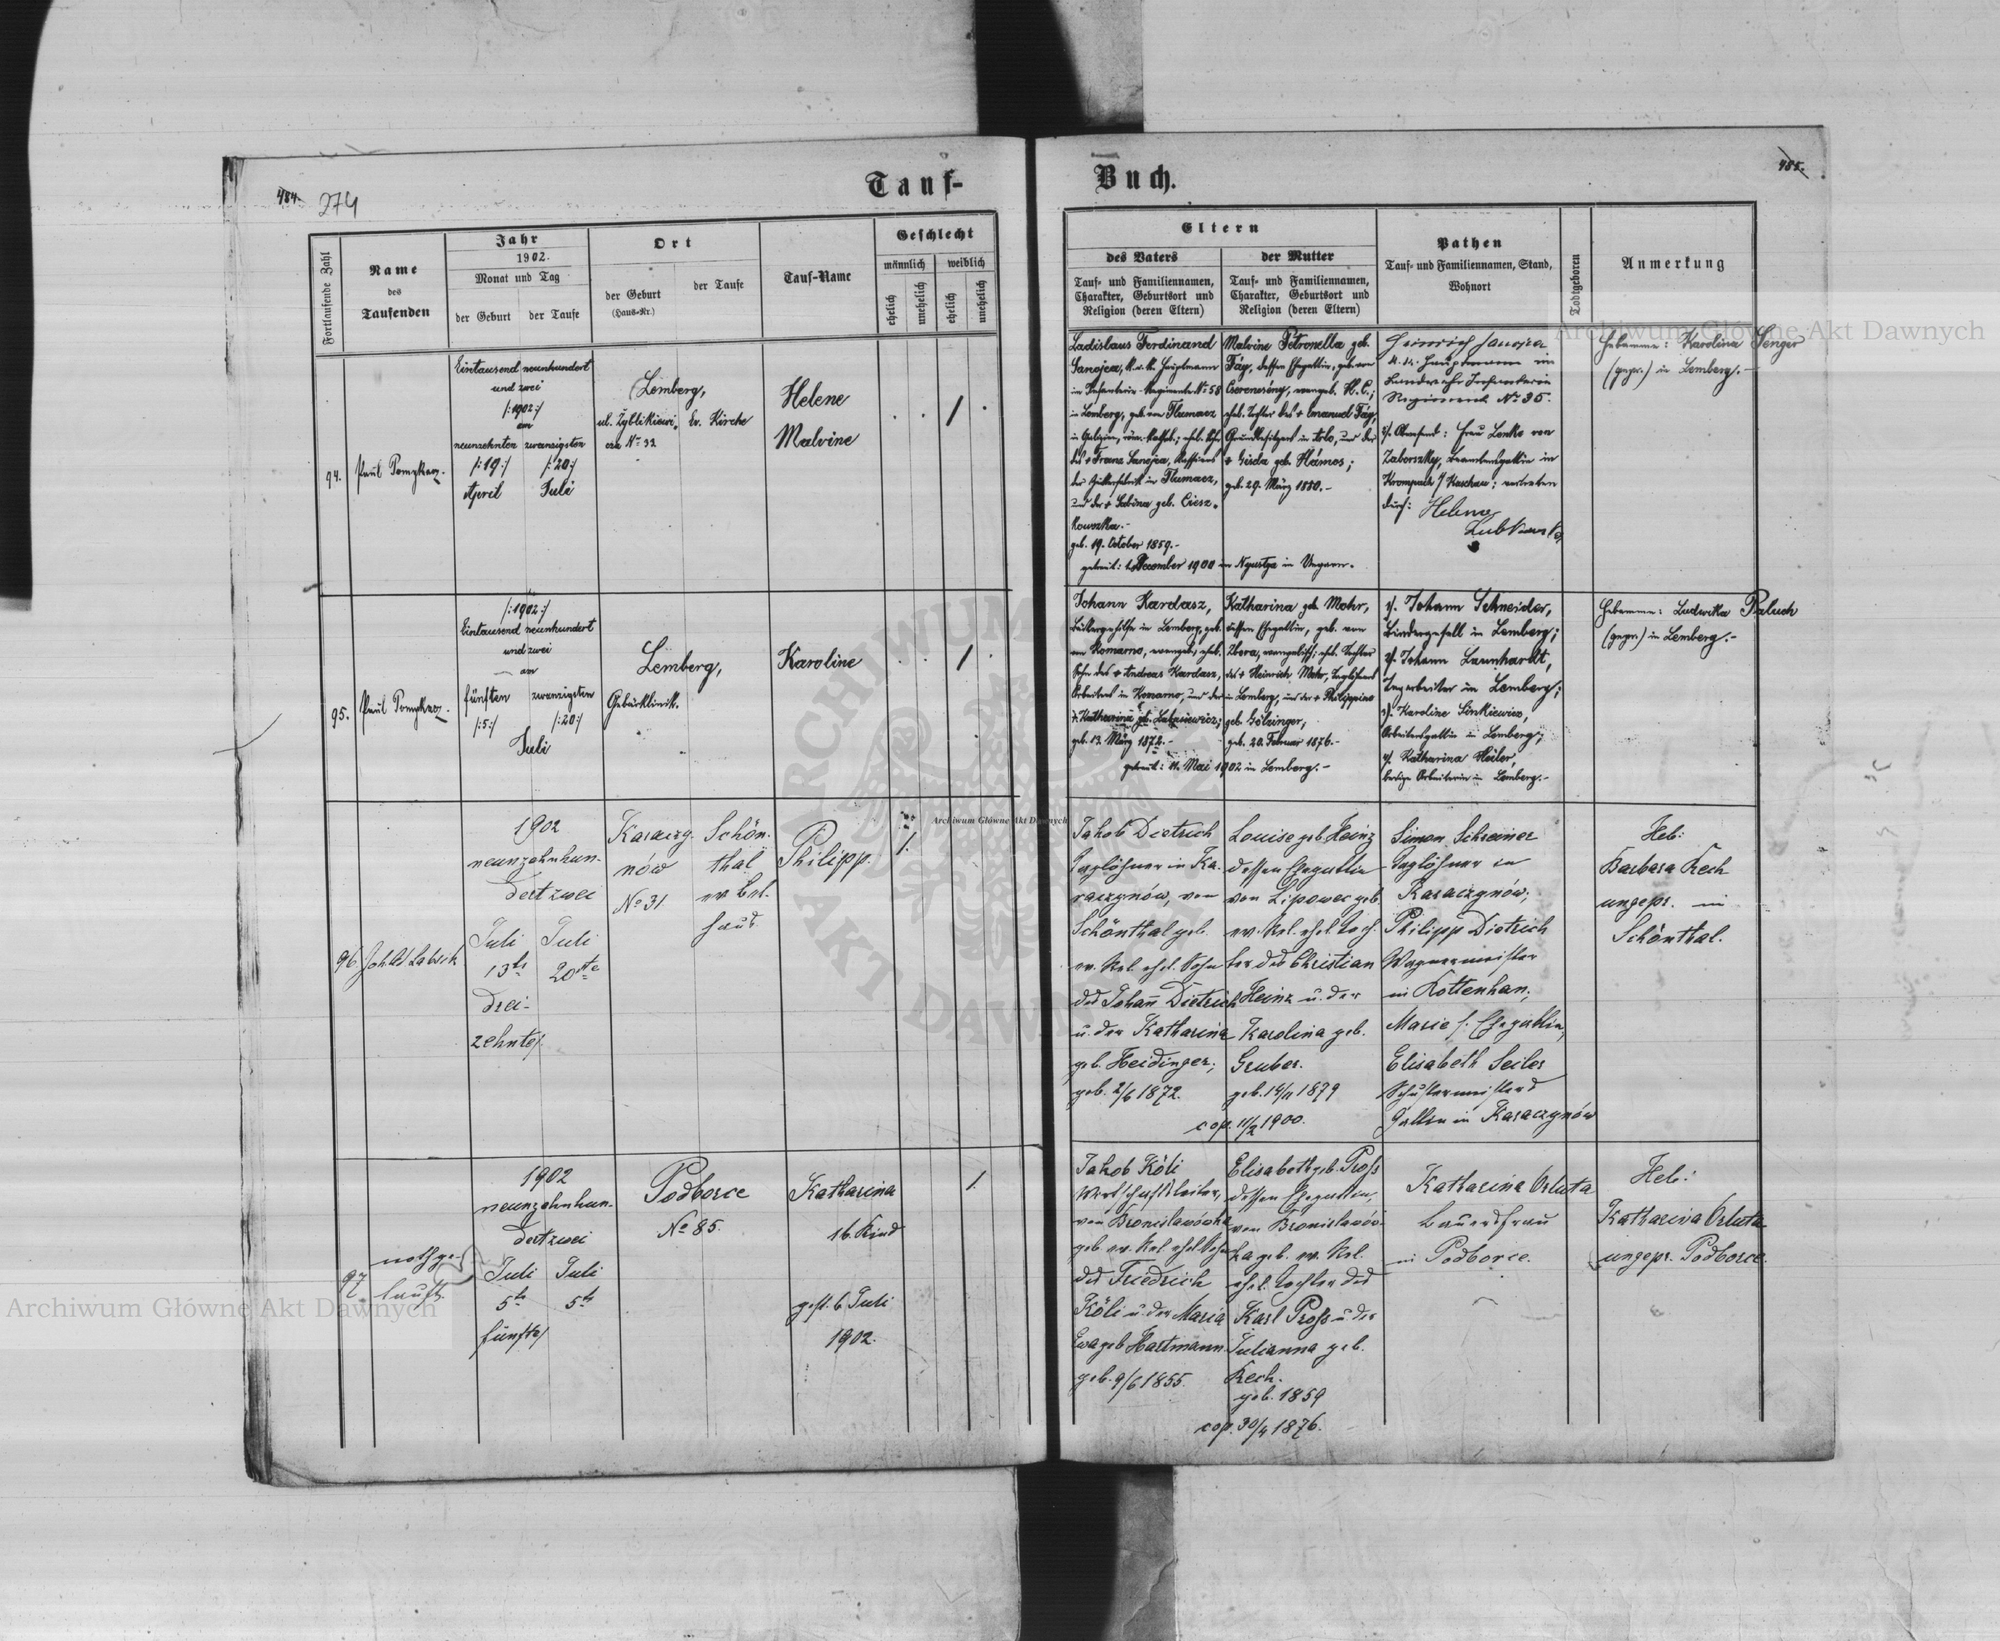 484.
274
Tauf-
Buch.
485.
Fortlaufende Zahl
Name
des
Taufenden
Jahr
1902.
Monat und Tag
der Geburt
der Taufe
Ort
der Geburt
(Haus-Nr.)
der Taufe
Tauf-Name
Geschlecht
männlich
weiblich
ehelich
unehelich
ehelich
unehelich
Eltern
des Vaters
Tauf- und Familiennamen,
Charakter, Geburtsort und
Religion (deren Eltern)
der Mutter
Tauf- und Familiennamen,
Charakter, Geburtsort und
Religion (deren Eltern)
Pathen
Tauf- und Familiennamen, Stand,
Wohnort
Todtgeboren
Anmerkung
94.
Eintausend neunhundert
und zwei
/:1902:/
am
neunzehnten
/:19:/
April
zwanzigsten
/:20:/
Juli
Lemberg,
Ev. Kirche
Helene
Malvine
Ladislaus Ferdinand
Sanojca, k.u.k. Hauptmann
im Infanterie-Regiment N: 58
in Lemberg, geb. von Tlumacz
in Galizien, röm.-kathol.; ehel. Sohn
des + Franz Sanojca,
in Tlumacz,
und der + Sabina geb. Ciesz-
kowszka.-
geb. 19. October 1859.-
Malvine Petronella geb.
Fáy, dessen Ehegattin, geb. von
ehel. Tochter des + Emanuel Fáy,
Grundbesitzers in Arlo, und der
+ Gisela geb. Hámos;
geb. 29. März 1880.-
getraut: December 1900 in Nyustya in Ungarn.
Heinrich Sanojca
k. k. Hauptmann im
Regiment No 35.
Frau Lenke von
Zaborszky, Beamtensgattin in
Krompach / Kaschau; vertreten
durch: Helena
Hebamme: Karolina Senger
(gepr.) in Lemberg.-
95.
/:1902:/
Eintausend neunhundert
und zwei
am
fünften
/:5:/
zwanzigsten
/:20:/
Juli
Lemberg,
Gebärklinik.
Karoline
Johann Kardasz,
in Lemberg, geb.
von Komarno, evangel., ehel.
Sohn des + Andreas Kardasz,
Arbeiters in Komarno, und der
geb. 13. März
Katharina geb. Mohr,
dessen Ehegattin, geb. von
evangelisch; ehel. Tochter
des + Heinrich Mohr, Taglöhners
in Lemberg, und der + Philippine
geb. Gölzinger,
geb. 20. Februar 1876.-
getraut: 11. Mai 1902 in Lemberg.-
1/. Johann Schneider,
Bindergesell in Lemberg;
2/. Johann Baunhardt,
Tagarbeiter in Lemberg;
3/. Karoline Sinkiewicz,
Arbeitersgattin in Lemberg;
4/. Katharina Heiler,
ledige Arbeiterin in Lemberg.-
Hebamme: Ludwika Paluch
(gepr.) in Lemberg.-
96.
1902
neunzehnhun-
dertzwei
Juli
13te
drei-
zehnte/
Juli
20ste
Karaczy-
nów
No 31
Schön-
thal
ev. Bet-
haus
Philipp.
1.
Jakob Dietrich
Taglöhner in Ka-
raczynów, von
Schönthal geb.
ev. Rel. ehel. Sohn
des Johann Dietrich
u. der Katharina
geb. Heidinger;
geb. 2/6 1872.
Louise geb. Heinz
dessen Ehegattin
von Lipowec geb.
ev. Rel. ehel. Toch-
ter des Christian
Heinz u. der
Karolina geb.
Gruber.
geb. 14/11 1879
cop. 11/2 1900.
Simon Schreiner
Taglöhner in
Karaczynów;
Philipp Dietrich
Wagnermeister
in Kottenhan;
Marie s. Ehegattin,
Elisabeth Seiler
Schustermeisters
Gattin in Karaczynów
Heb:
Barbara Kech
ungepr. in
Schönthal.
97
nothge-
tauft.
1902
neunzehnhun-
dertzwei
Juli
5te
fünfte/
Juli
5te
Podborce
No 85.
Katharina
16. Kind
gest. 6 Juli
1902.
1.
Jakob Köli
Wirtschaftsleiter,
von Bronislawówka
geb. ev. Rel. ehel. Sohn
des Friedrich
Köli u. der Maria
Ewa geb. Hartmann
geb. 9/6 1855.
Elisabeth geb. Pross
dessen Ehegattin,
von Bronislawów-
ka geb. ev. Rel.
ehel. Tochter des
Karl Pross u. der
Julianna geb.
Kech.
geb. 1859
cop. 30/4 1876.
Katharina Orluta
Bauersfrau
in Podborce.
Heb:
Katharina Orluta
ungepr. Podborce.
Archiwum Główne Akt Dawnych
Archiwum Główne Akt Dawnych
Archiwum Główne Akt Dawnych